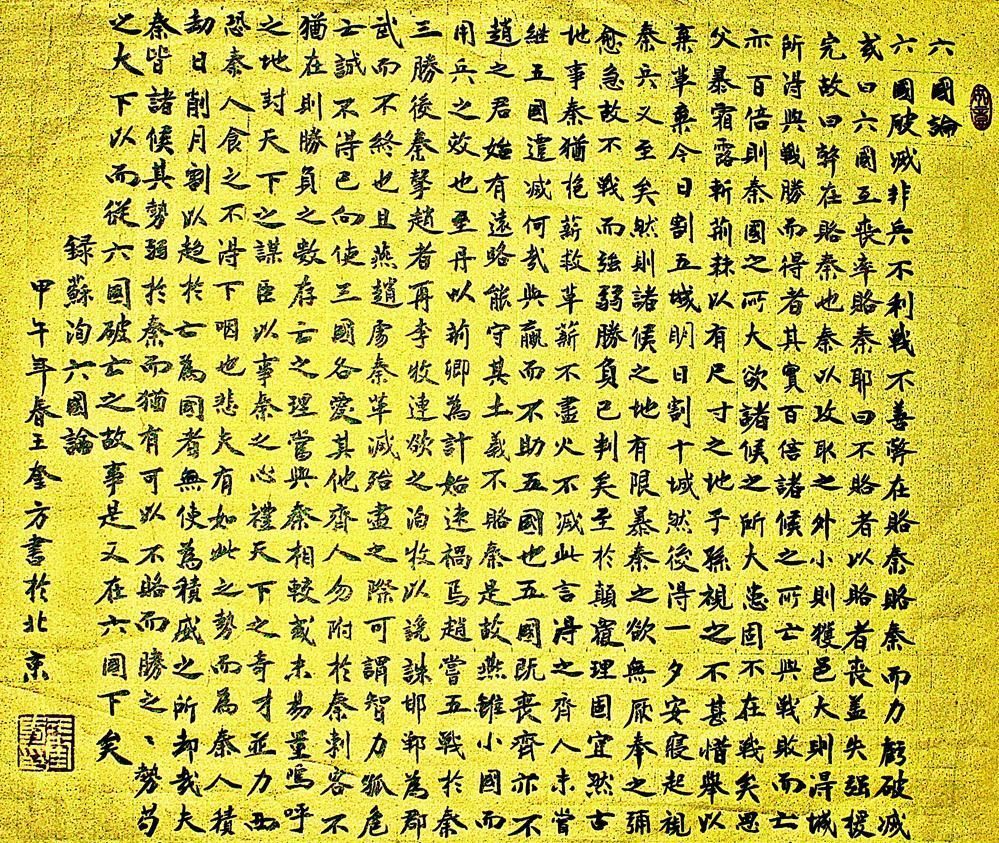 六國論
六國破滅非兵不利戰不善弊在賂秦賂秦而力虧破滅
或曰六國互喪率賂秦耶曰不賂者以賂者喪蓋失强援
完故曰弊在賂秦也秦以攻取之外小則獲邑大則得城
所得與戰勝而得者其實百倍諸候之所亡與戰敗而亡
亦百倍則秦國之所大欲諸候之所大患固不在戰矣思
父暴霜露斬荊棘以有尺寸之地子孫視之不甚惜舉以
棄草棄今日割五城明日割十城然後得一夕安寢起視
秦兵又至矣然則諸候之地有限暴秦之欲無厭奉之彌
愈急故不戰而強弱勝負已判矣至於顛覆理固宜然古
地事秦猶抱薪救草薪不盡火不滅此言得之齊人未嘗
继五國遷滅何哉與贏而不助五國也五國既喪齊亦不
趙之君始有遠賂能守其土義不賂秦是故燕雖小國而
用兵之效也至丹以荊卿為計始速禍焉趙嘗五戰於秦
三勝後秦擊趙者再李牧連欲之洎牧以讒誅邯鄲為郡
武而不終也且燕趙處秦革滅殆盡之際可謂智力孤危
亡誠不得已向使三國各愛其他齊人勿附於秦刺客不
猶在則勝負之數存亡之理當與秦相較或未易量嗚呼
之地封天下之謀臣以事秦之心禮天下之奇才並力西
恐秦人食之不得下咽也悲夫有如此之勢而為秦人積
劫日削月割以趋於亡為國者無使為積威之所却哉夫
秦皆諸候其勢弱於秦而猶有可以不賂而勝之、勢苟
之大下以而從六國破亡之故事是又在六國下矣
録蘇洵六國論
甲午年春王奎方書於北京